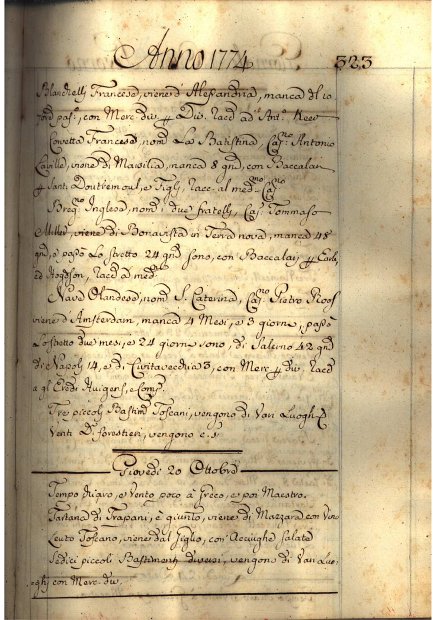 Anno 1774 323
Francese, viene d'Alessandria, manca dl 10
con Merc. div. Racd. ad Ant. Rees
Corvetta Francese, nom. La Batistina, Cap.no Antonio
viene di Marsilia, manca 8 gni, con Baccalari
Santi Doutremoul, e Figlj, Racc. al med.mo Cap.no
Brig.no Inglese, nom. due fratelli, Cap. Tommaso
Miller, viene di Bonavista in Terra nova, manca 48
gni, e passò Lo stretto 24 gni sono, con Baccalari
ed Hodgson, Racd. a med.
Nave Olandese, nom. S. Caterina, Cap.no Pietro Roos
viene d'Amsterdam, manca 4 Mesi, e 3 giorni, passò
Lo stretto due mesi, e 24 giorni sono, di Salerno 42 gni
di Napoli 14, e di Civitavecchia 3, con Merc. div. Racd.
a gl'Eredi Huigens, e Comp.
Tre piccoli Bastim.ti Toscani, vengono di Vari Luoghi, e
Venti D. forestieri, vengono c. s.
Giovedì 20 Ottobre
Tempo chiaro, e Vento poco à Greco, e poi Maestro.
Tartana di Trapani, è giunto, viene di Mazzara con Vino
Leuto Toscano, viene dal Giglio, con Acciughe salate
Sedici piccoli Bastimenti diversi, vengono di Vari Luo-
ghj con Merc. div.